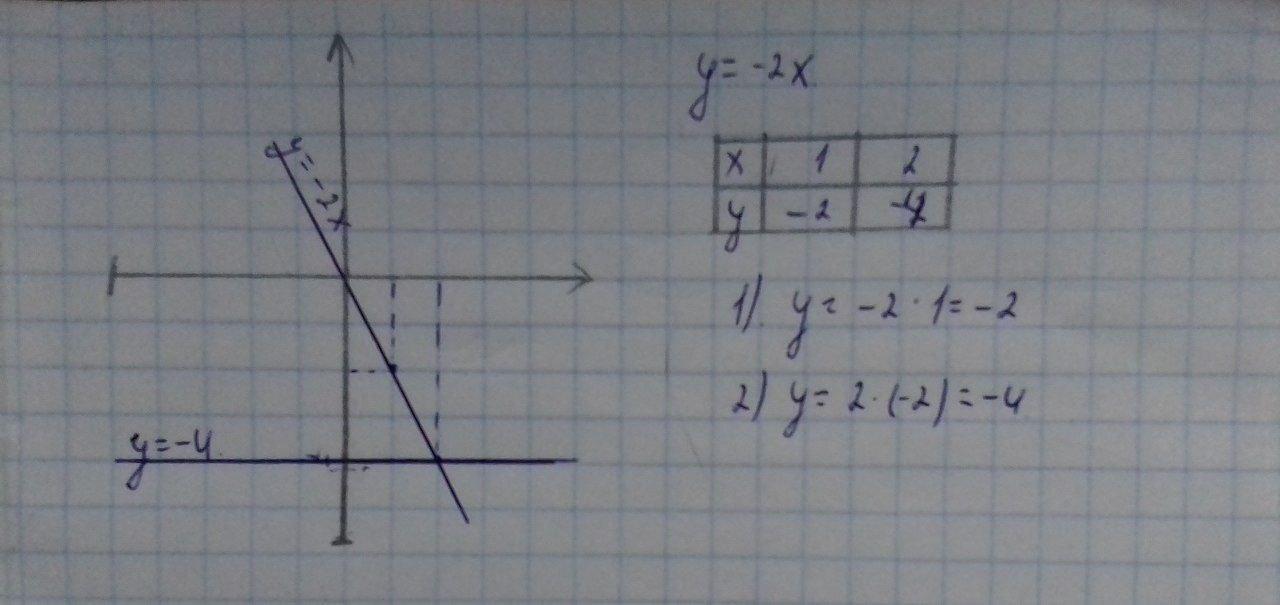 y = -2x
y = -2x
x 1 2
y -2 -4
1) y = -2 · 1 = -2
2) y = 2 · (-2) = -4
y = -4